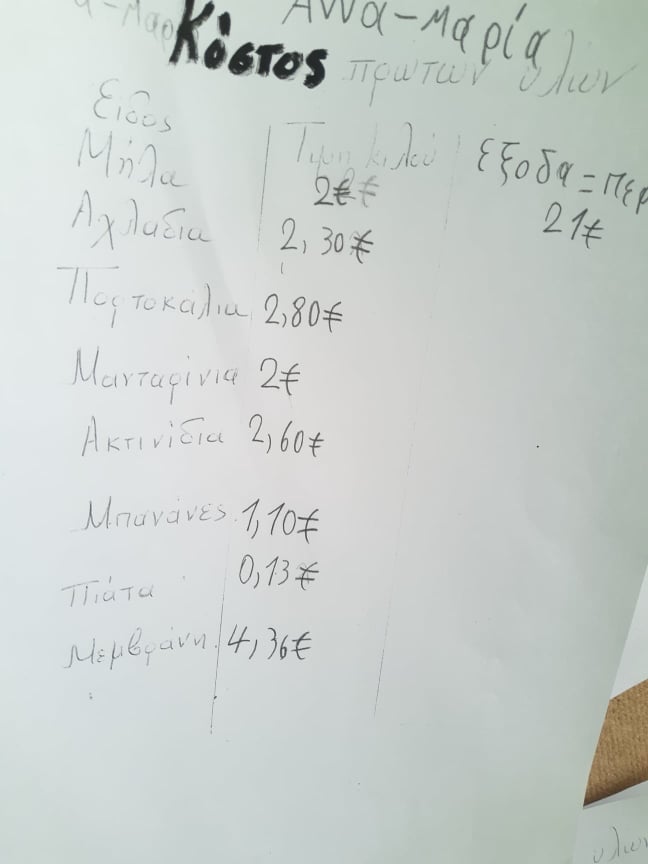 Άννα-Μαρία
Κόστος πρώτων υλών
Είδος Τιμή κιλού έξοδα = περ
Μήλα 2€ 21€
Αχλάδια 2,30€
Πορτοκάλια 2,80€
Μανταρίνια 2€
Ακτινίδια 2,60€
Μπανάνες 1,10€
Πιάτα 0,13€
Μεμβράνη 4,36€